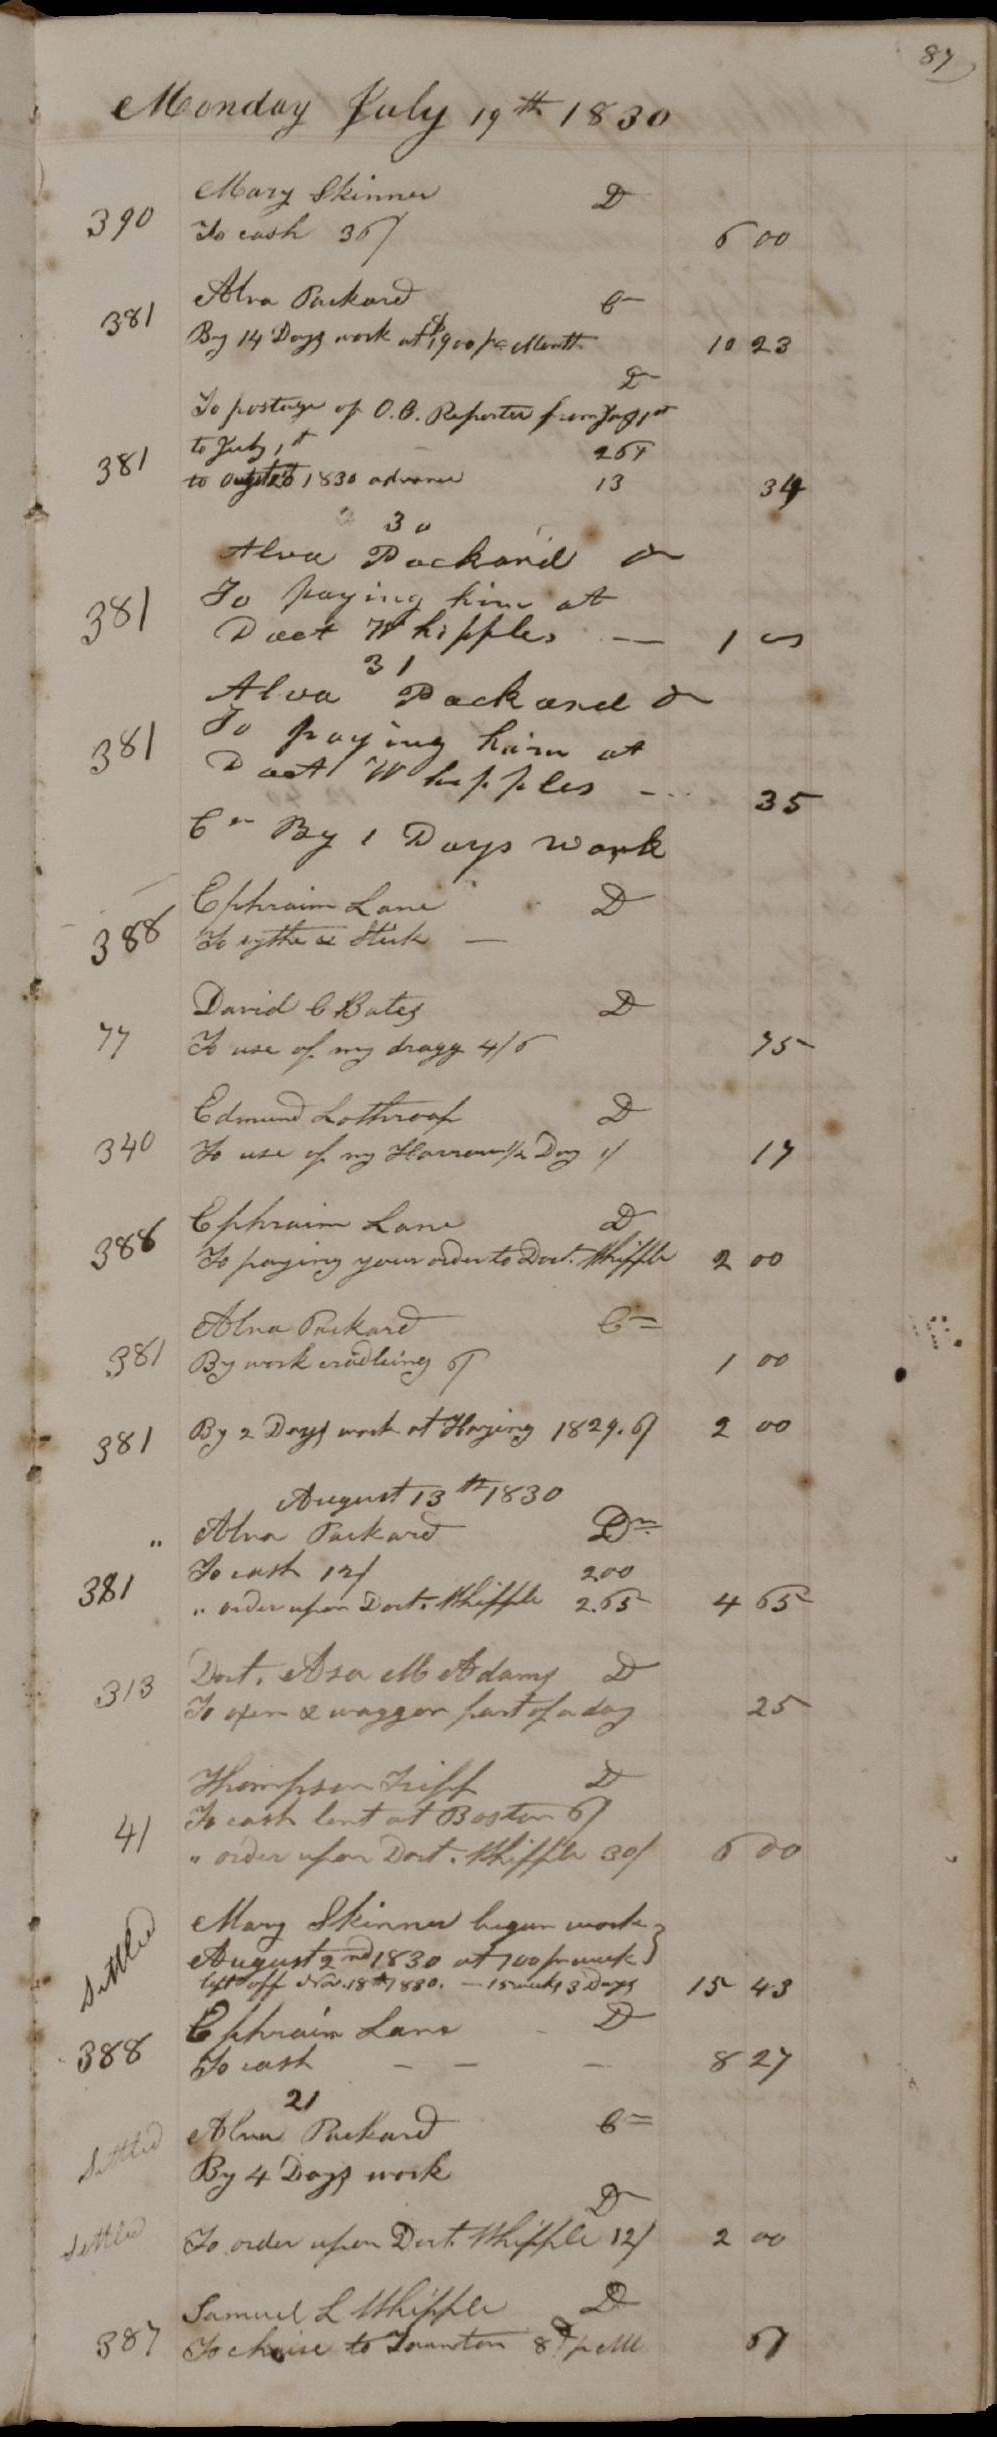 87
Monday July 19th 1830
Mary Skinner D
390 To cash 36/ 6 00
Alva Packard Cr
381 By 14 Days work at $19 00 per Month 10 23
Dr
To postage of O.C. Reporter from 1st
to July 1st 26
381 to 1830 advance 13 34
30
Alva Packard Dr
381 To paying him at
Doct Whipples — 1
31
Alva Packard Dr
381 To paying him at
Doct Whipples - 35
Cr By 1 Days work
Ephraim Lane D
388 To sythe & Stick —
David C Bates D
77 To use of my dragg 4/6 75
Edmund Lothroop D
340 To use of my Harrow 1/2 Day 1/ 17
Ephraim Lane D
388 To paying your order to Doct. Whipple 2 00
Alva Packard Cr
381 By work cradleing 6/ 1 00
381 By 2 Days work at Haying 1829. 6/ 2 00
August 13th 1830
" Alva Packard Dr
To cash 12/ 2.00
381 " order upon Doct. Whipple 2.65 4 65
Doct. Asa M Adams D
313 To oxen & waggon part of a day 25
Thompson Tripp D
41 To cash lent at Boston 6/
" order upon Doct. Whipple 30/ 6 00
Settled Mary Skinner began work
August 2nd 1830 at 100 pr week
left off Nov. 18th 1830. — 15 weeks 3 Days 15 43
Ephraim Lane D
388 To cash — — — 8 27
21
Settled Alva Packard Cr
By 4 Days work
Dr
Settled To order upon Doct. Whipple 12/ 2 00
Samuel L Whipple D
387 To chaise to Taunton 8d per M 67